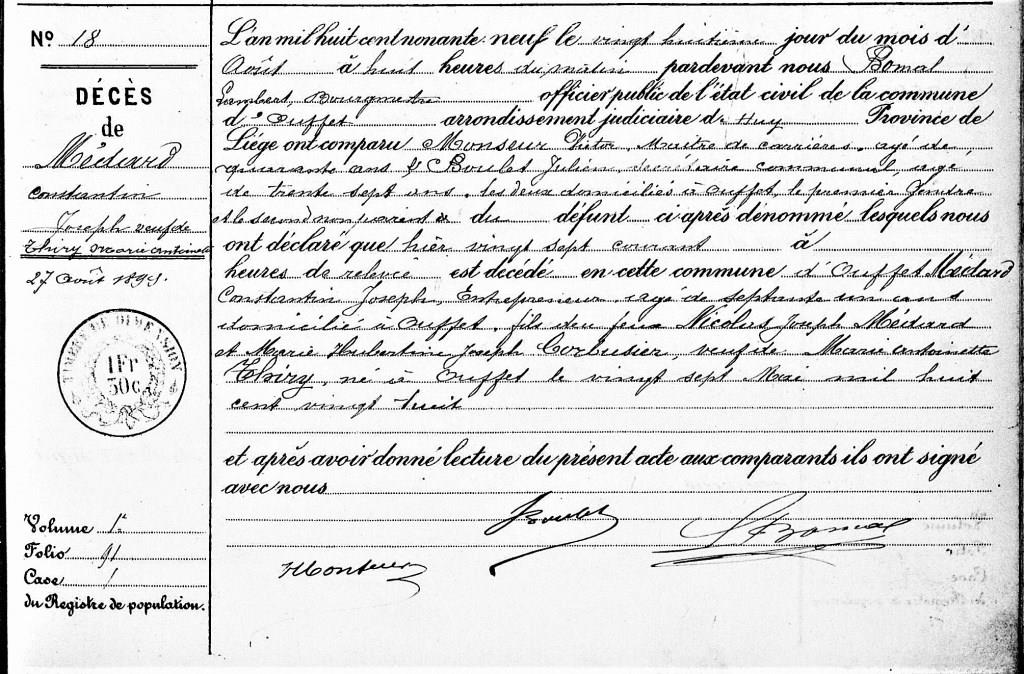 N° 18
DÉCÈS
de
Médard
Constantin
Joseph veuf de
Thiry Marie Antoinette
27 Août 1899.
TIMBRE DE DIMENSION
1 Fr
30c
Volume 1r
Folio 91
Case 1
du Registre de population.
L'an mil huit cent nonante neuf le vingt huitième jour du mois d'
Août à huit heures du matin pardevant nous Bomal
Lambert, Bourgmestre officier public de l'état civil de la commune
d'Ouffet arrondissement judiciaire de Huy Province de
Liège ont comparu Monseur Victor, Maître de carrières, agé de
quarante ans & Boulet Julien, secrétaire communal, agé
de trente sept ans, les deux domiciliés à Ouffet, le premier Gendre
et le second non parent du défunt ci après dénommé lesquels nous
ont déclaré que hier vingt sept courant à
heures de relevée est décédé en cette commune d'Ouffet Médard
Constantin Joseph, Entrepreneur agé de septante un ans
domicilié à Ouffet, fils des feux Nicolas Joseph Médard
et Marie Hubertine Joseph Corbusier, veuf de Marie Antoinette
Thiry, né à Ouffet le vingt sept Mai mil huit
cent vingt huit
et après avoir donné lecture du présent acte aux comparants ils ont signé
avec nous
JBoulet
LBomal
VMonseur